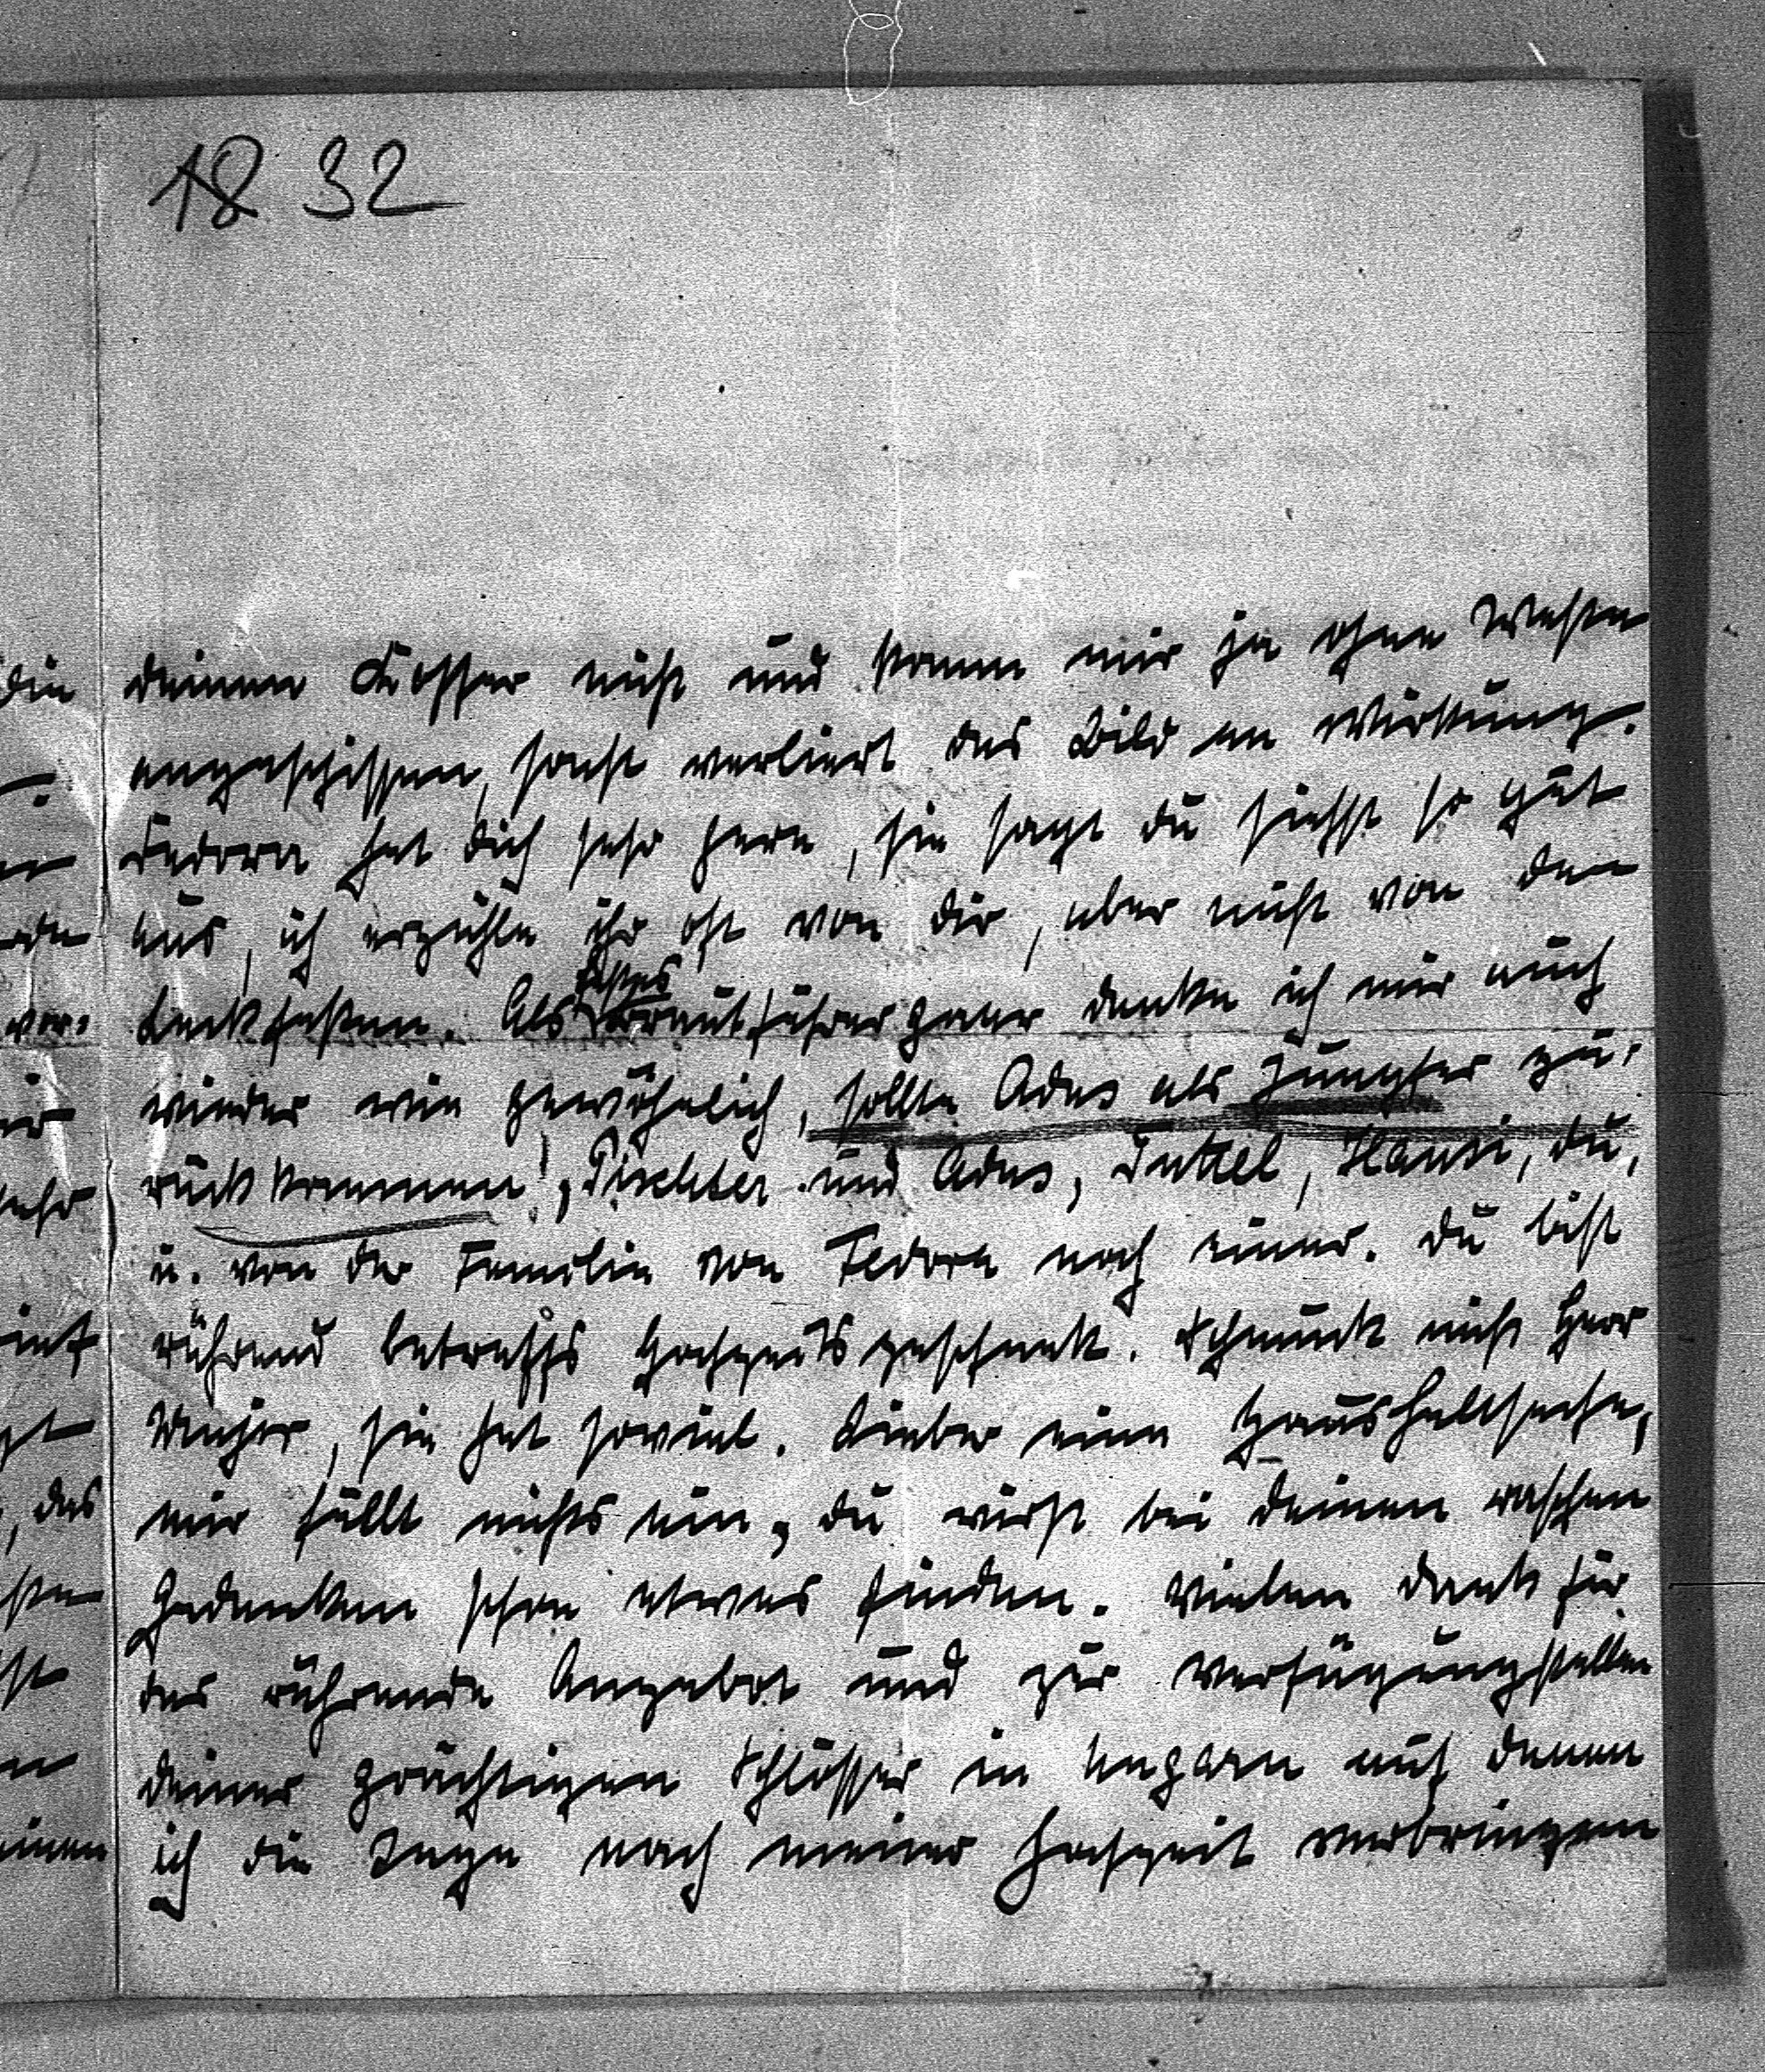 18 32
deinen Koffer nicht und komm mir ja ohne Weste
angeschissen, sonst verliert das Bild an Wirkung.
Fedora hat dich sehr gern, sie sagt du siehst so gut
aus, ich erzähle ihr oft von dir, aber nicht von den
Als führer paar denke ich mir auch
wieder wie gewöhnlich, sollte Ades als Jungfer zu-
rück kommen! und Ades, Juttel, Hansi, du,
u. von der Familie von Fedora noch einer. Du bist
rührend betreffs Hochzeitsgeschenk. Schmuck nicht Herr
Major, sie hat soviel. Lieber eine Haushaltsache,
mir fällt nichts ein, du wirst bei deinen raschen
Gedanken schon etwas finden. Vielen Dank für
das rührende Angebot und zur Verfügungstellen
deiner prächtigen Schlösser in Ungarn auf denen
ich die Tage nach meiner Hochzeit verbringen